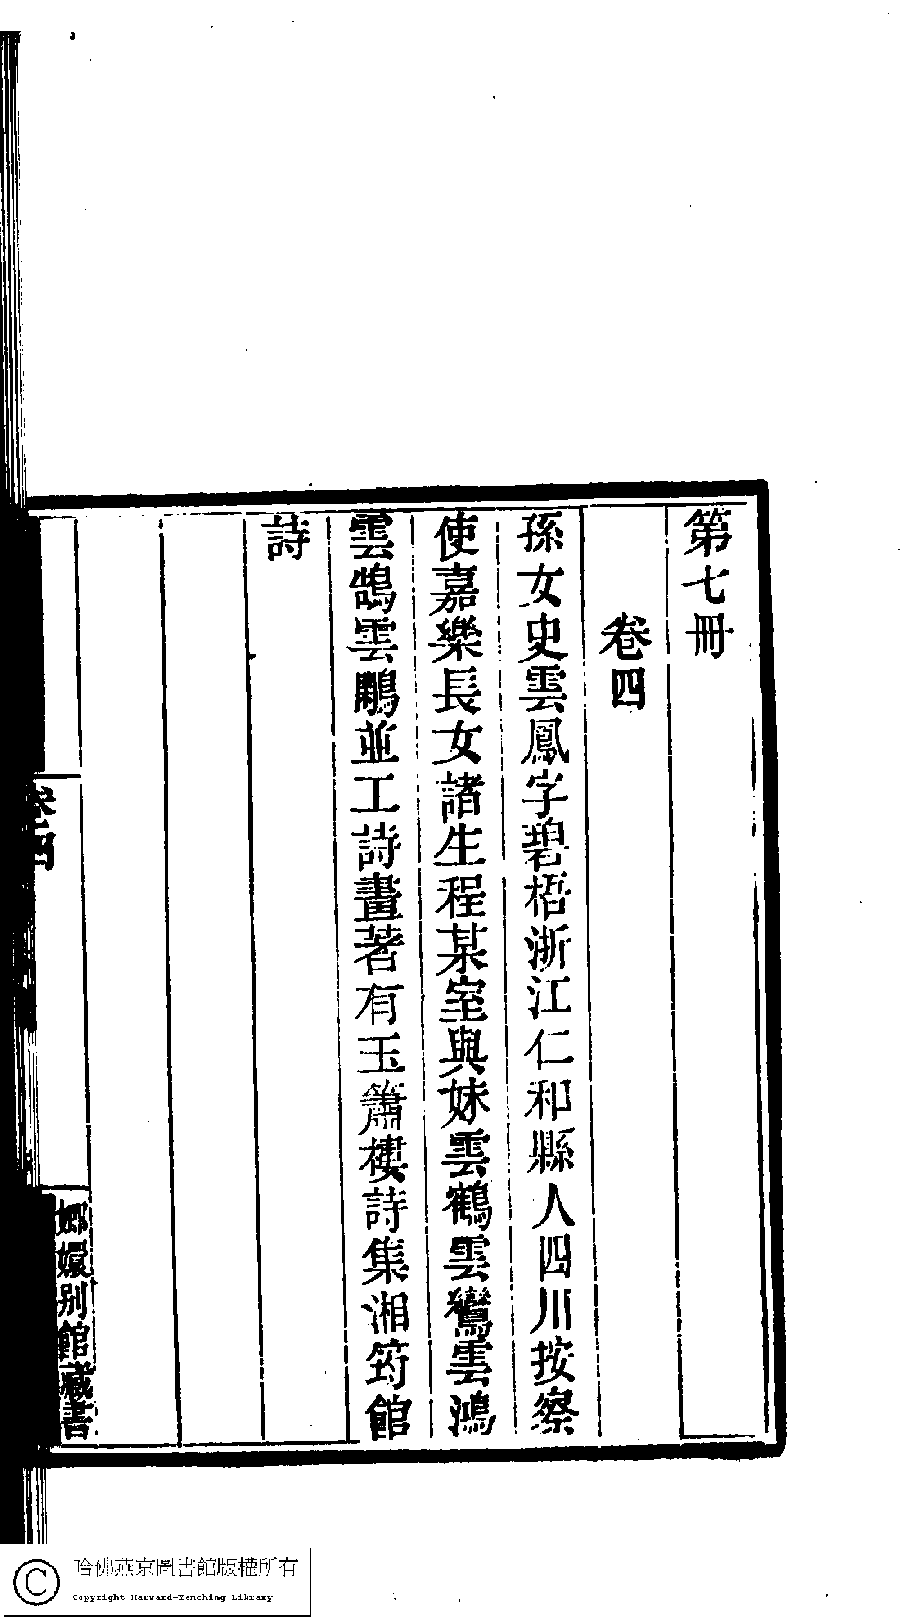 第七冊
卷四
孫女史雲鳳字碧梧浙江仁和縣人四川按察
使嘉樂長女諸生程某室與妹雲鶴雲鸞雲鴻
雲鵠雲鵰並工詩畫著有玉簫樓詩集湘筠館
詩
卷四
嫏嬛別館藏書
哈佛燕京圖書館版權所有
Copyright Harvard-Yenching Library